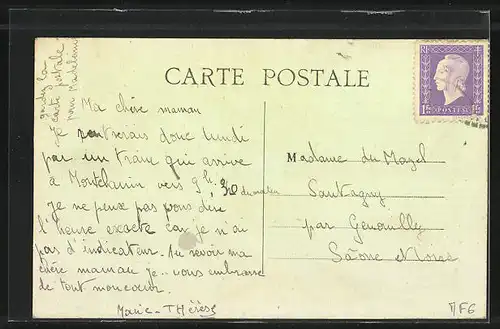 gardez la
carte postale
pour Madeleine
CARTE POSTALE
RF
1F50
POSTES
Ma chère maman
Je rentrerais donc lundi
par un train qui arrive
à Montchanin vers 9h, 30 du matin
je ne peux pas vous dire
l'heure exacte car je n'ai
pas d'indicateur. Au revoir ma
chère maman je vous embrasse
de tout mon coeur.
Marie-Thérèse
Madame du Mazel
Santagny
par Genouilly
Saône et Loire
MF6